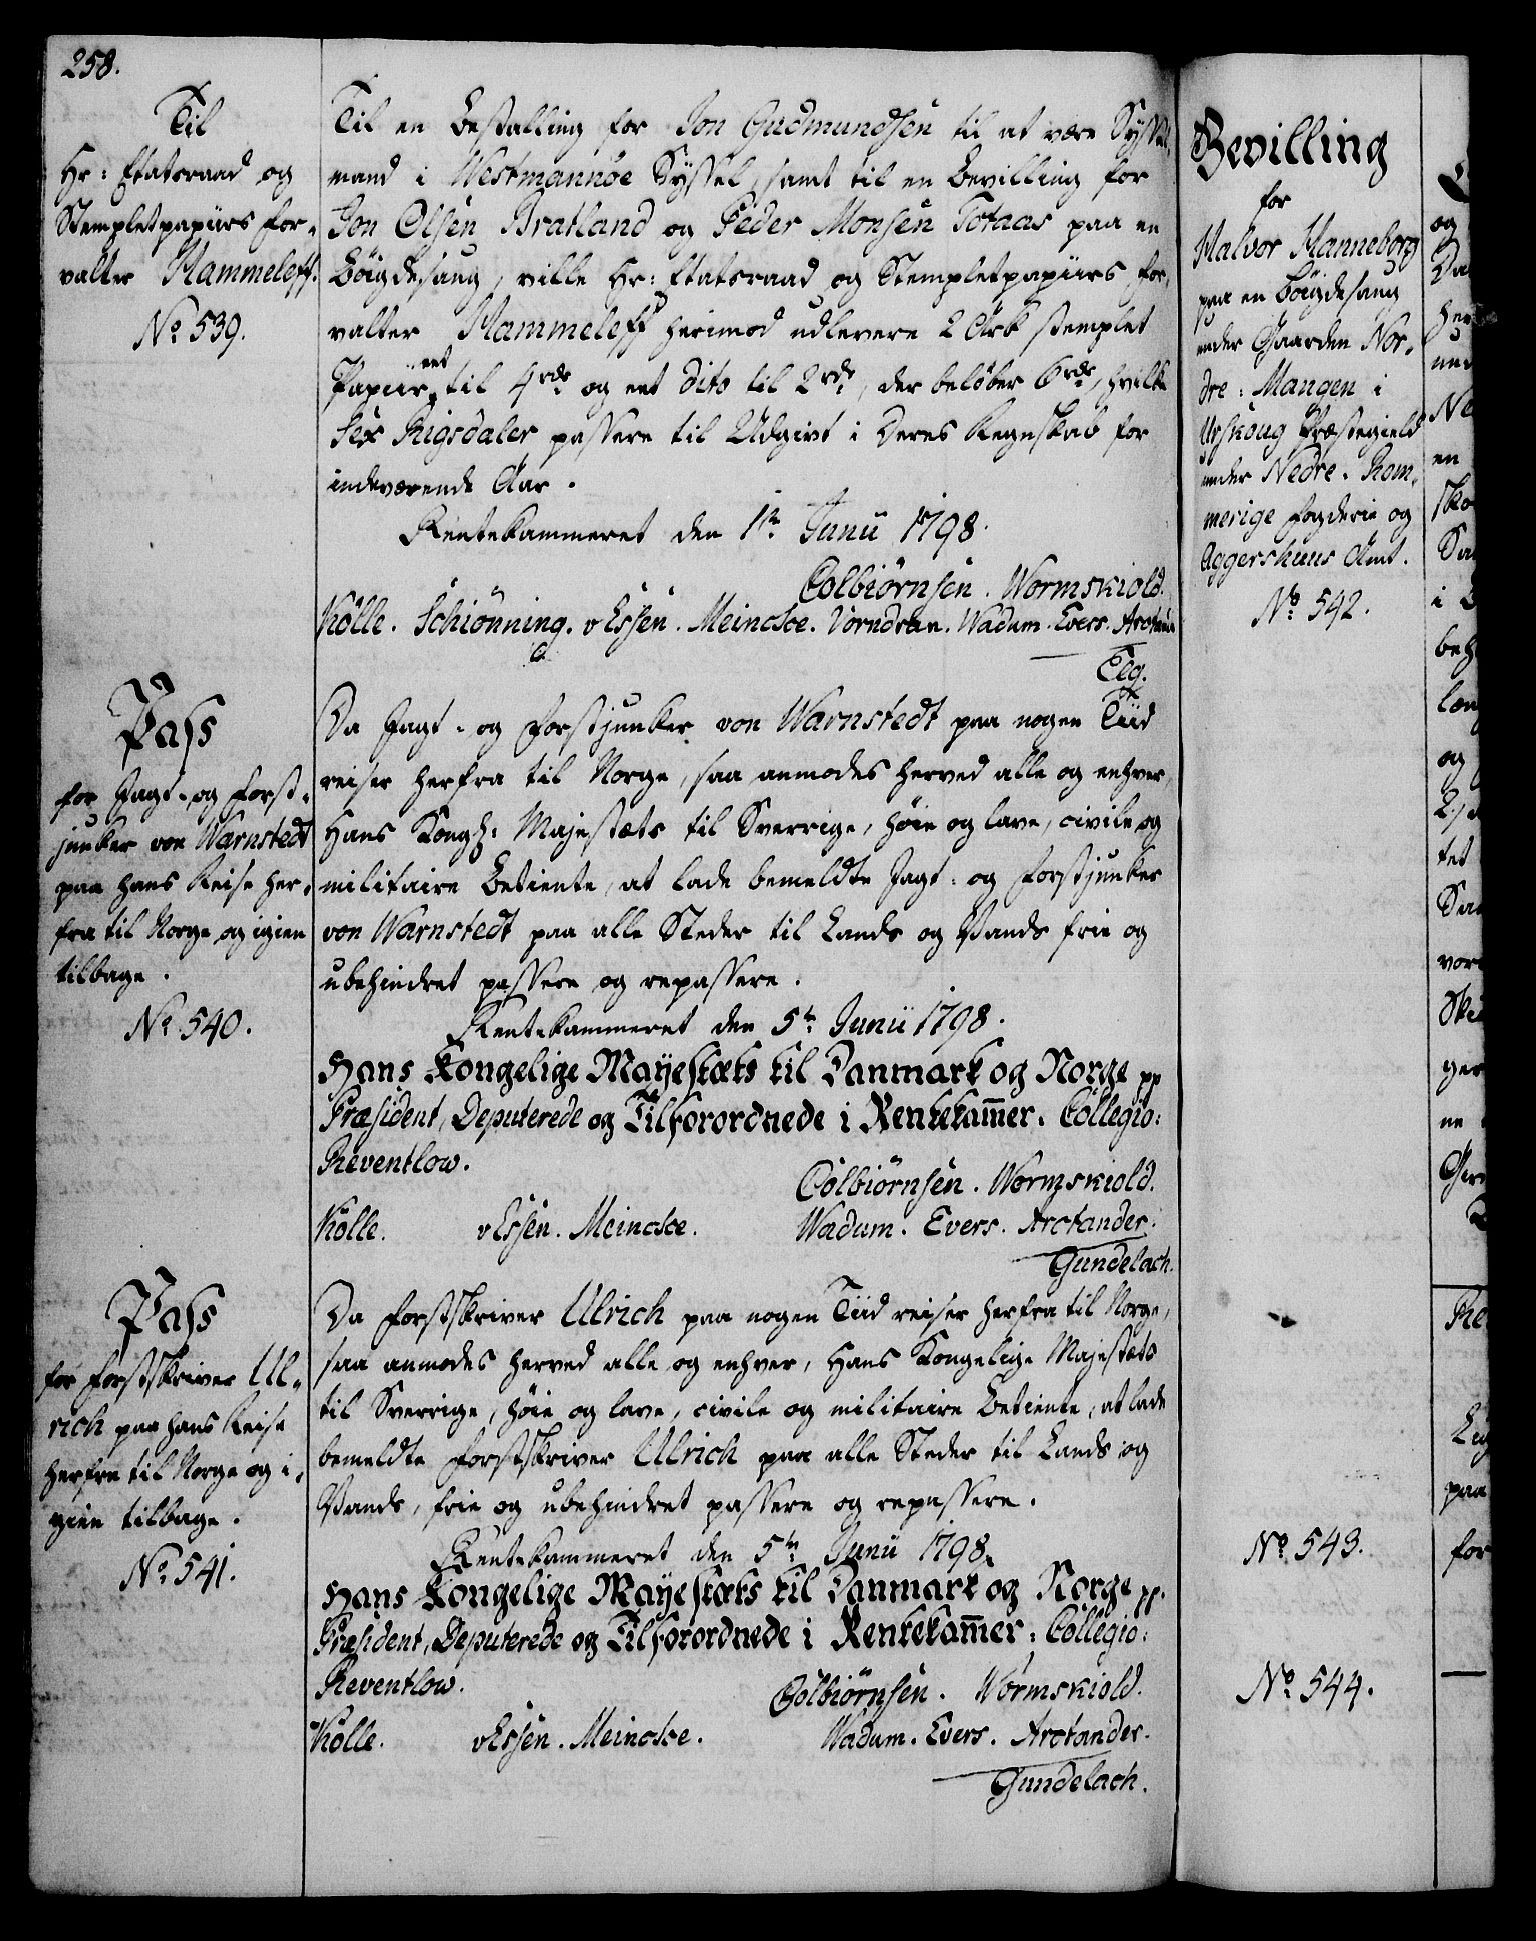 258.
Til
Hr: Etatsraad og
Stempletpapiirs for-
valter Hammeleff.
No 539.
Til en Bestalling for Jon Gudmundsen til at være Syssel-
mand i Westmannöe Syssel, samt til en Bevilling for
Jon Olsen Bratland og Peder Monsen Totaas paa en
Böigdesaug, ville Hr: Etatsraad og Stempletpapiirs for-
valter Hammeleff herimod udlevere 2 Ark stemplet
Papiir, eet til 4 rdr og eet dito til 2 rdr, der beløber 6 rdr, hvilke
Sex Rigsdaler passere til Udgivt i Deres Regnskab for
indeværende Aar.
Rentekammeret den 1te Junii 1798.
Colbiörnsen. Wormskiold.
Kölle. Schiönning. v Essen. Meincke. Vorndran. Wadum. Evers. Arctander
Elg.
Pass
for Jagt- og Forst-
junker von Warnstedt
paa hans Reise her-
fra til Norge og igien
tilbage.
No 540.
Da Jagt- og Forstjunker von Warnstedt paa nogen Tiid
reiser herfra til Norge, saa anmodes herved alle og enhver,
Hans Kongl: Majestæts til Sverrige, høie og lave, civile og
militaire Betiente, at lade bemeldte Jagt- og Forstjunker
von Warnstedt paa alle Steder til Lands og Vands frie og
ubehindret passere og repassere.
Rentekammeret den 5te Junii 1798.
Hans Kongelige Mayestæts til Danmark og Norge pp
Præsident, Deputerede og Tilforordnede i Rentekam̅er-Collegio:
Reventlow.
Colbiörnsen. Wormskiold.
Kölle. v Essen. Meincke. Wadum. Evers. Arctander.
Gundelach.
Pass
for Forstskriver Ul-
rich paa hans Reise
herfra til Norge og i-
gien tilbage.
No 541.
Da Forstskriver Ulrich paa nogen Tiid reiser herfra til Norge,
saa anmodes herved alle og enhver, Hans Kongelige Majestæts
til Sverrige, høie og lave, civile og militaire Betiente, at lade
bemeldte Forstskriver Ulrich paa alle Steder til Lands og
Vands, frie og ubehindret passere og repassere.
Rentekammeret den 5te Junii 1798.
Hans Kongelige Mayestæts til Danmark og Norge pp.
Præsident, Deputerede og Tilforordnede i Rentekam̅er-Collegio:
Reventlow.
Colbiörnsen. Wormskiold.
Kölle. v Essen. Meincke. Wadum. Evers. Arctander.
Gundelach.
Bevilling
for
Halvor Hanneborg
paa en Böigdesaug
under Gaarden Nor-
dre-Mangen i
Urskoug Præstegield
under Nedre-Rom-
merige Fogderie og
Aggershuus Amt.
No 542.
No 543.
No 544.